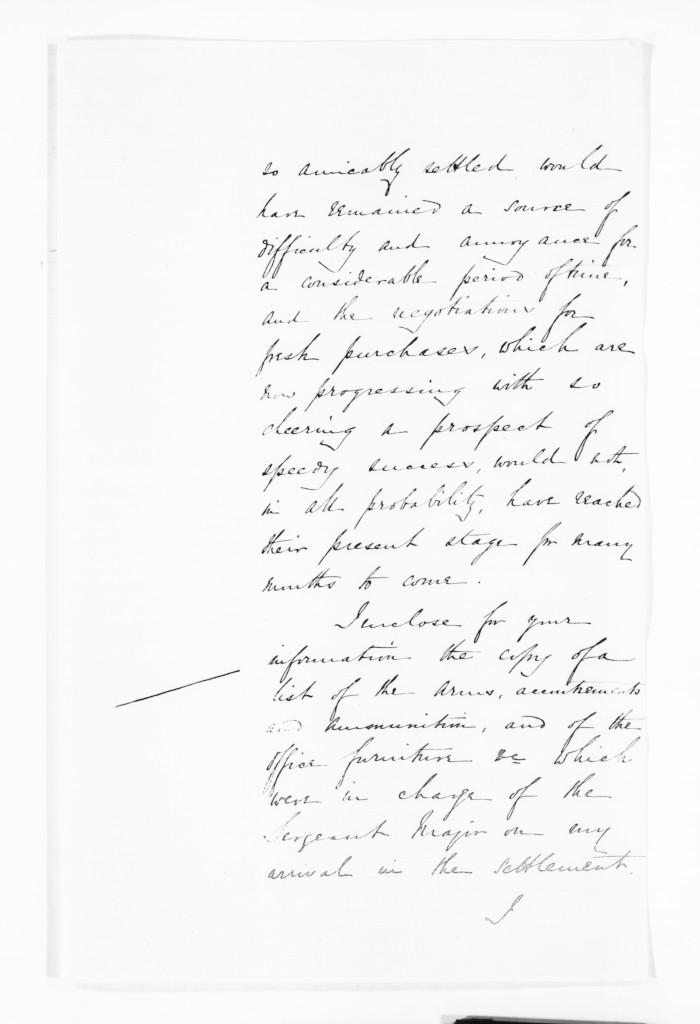 so amicably settled would
have remained a source of
difficulty and annoyance for
a considerable period of time,
and the negotiations for
fresh purchases, which are
now progressing with so
cheering a prospect of
speedy success, would not,
in all probability, have reached
their present stage for many
months to come.
I enclose for your
information the copy of a
list of the arms, accoutrements
and ammunition, and of the
office furniture &c which
were in charge of the
Sergeant Major on my
arrival in the settlement.
I